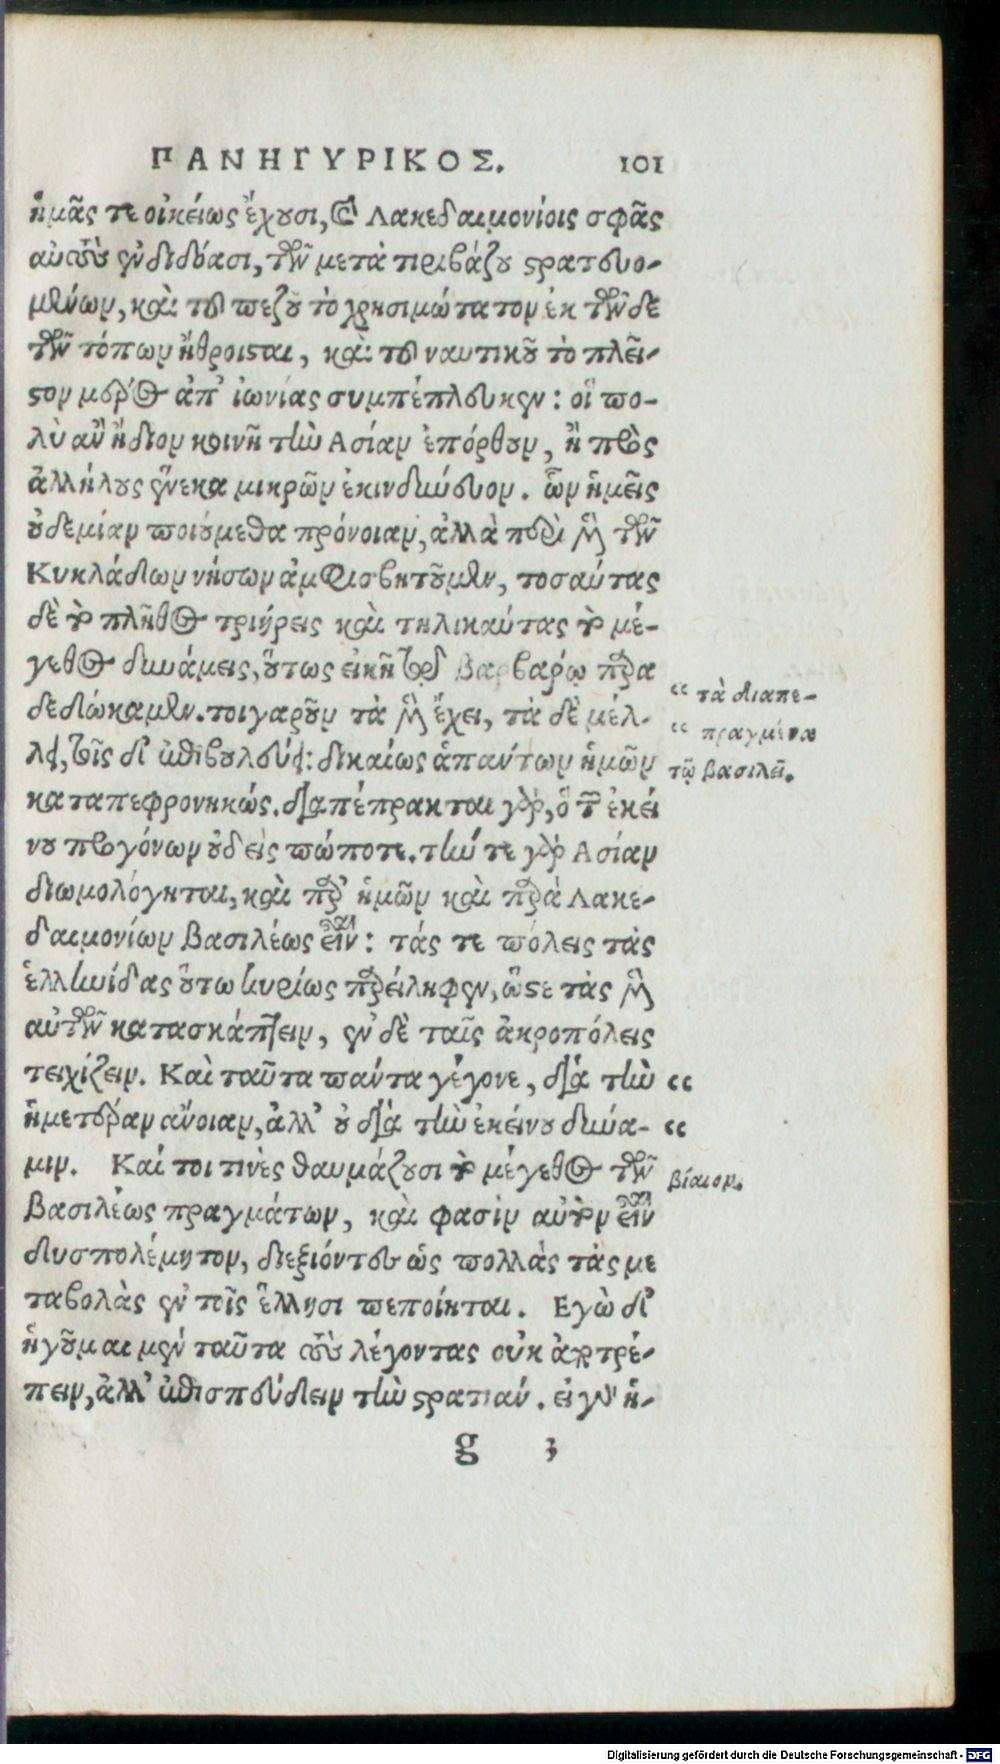 ΠΑΝΗΓΥΡΙΚΟΣ. 101
ἡμᾶς τε οἰκείως ἔχουσι, καὶ Λακεδαιμονίοις σφᾶς
αὐτοὺς ἐνδιδόασι, τῶν μετὰ τιριβάζου στρατευο-
μένων, καὶ τοῦ πεζοῦ τὸ χρησιμώτατον ἐκ τῶν δε
τῶν τόπων ἤθροισται, καὶ τοῦ ναυτικοῦ τὸ πλεῖ-
στον μέρος ἀπ' ἰωνίας συμπέπλευκεν: οἳ πο-
λὺ ἂν ἥδιον κοινῇ τὴν Ασίαν ἐπόρθουν, ἢ πρὸς
ἀλλήλους ἕνεκα μικρῶν ἐκινδύνευον. ὧν ἡμεῖς
οὐδεμίαν ποιούμεθα πρόνοιαν, ἀλλὰ περὶ μὲν τῶν
Κυκλάδων νήσων ἀμφισβητοῦμεν, τοσαύτας
δὲ τὸ πλῆθος τριήρεις καὶ τηλικαύτας τὸ μέ-
γεθος δυνάμεις, οὕτως εἰκῆ τῷ βαρβάρῳ παρα
δεδώκαμεν. τοιγαροῦν τὰ μὲν ἔχει, τὰ δὲ μέλ-
λει, τοῖς δ' ἐπιβουλεύει: δικαίως ἁπάντων ἡμῶν
καταπεφρονηκώς. διαπέπρακται γὰρ, ὃ τῶν ἐκεί
νου προγόνων οὐδεὶς πώποτε. τήν τε γὰρ Ασίαν
διωμολόγηται, καὶ παρ' ἡμῶν καὶ παρὰ Λακε-
δαιμονίων Βασιλέως εἶναι: τάς τε πόλεις τὰς
ἑλληνίδας οὕτω κυρίως παρείληφεν, ὥστε τὰς μὲν
αὐτῶν κατασκάπτειν, ἐν δὲ ταῖς ἀκροπόλεις
τειχίζειν. Καὶ ταῦτα πάντα γέγονε, διὰ τὴν “
ἡμετέραν ἄνοιαν, ἀλλ' οὐ διὰ τὴν ἐκείνου δύνα- “
μιν. Καί τοι τινὲς θαυμάζουσι τὸ μέγεθος τῶν
Βασιλέως πραγμάτων, καὶ φασὶν αὐτὸν εἶναι
δυσπολέμητον, διεξιόντες ὡς πολλὰς τὰς με
ταβολὰς ἐν τοῖς ἕλλησι πεποίηται. Εγὼ δ'
ἡγοῦμαι μὲν ταῦτα τοὺς λέγοντας οὐκ ἀποτρέ-
πειν, ἀλλ' ἐπισπεύδειν τὴν στρατιάν. εἰ γὰρ ἡ-
g 3
“ τὰ διαπε-
“ πραγμένα
τῷ βασιλεῖ.
βίαιον.
Digitalisierung gefördert durch die Deutsche Forschungsgemeinschaft - DFG